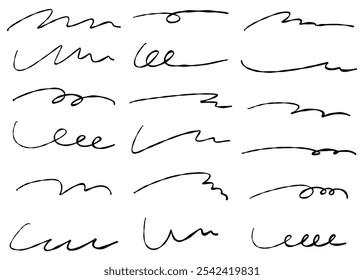 shutterstock.com · 2542419831